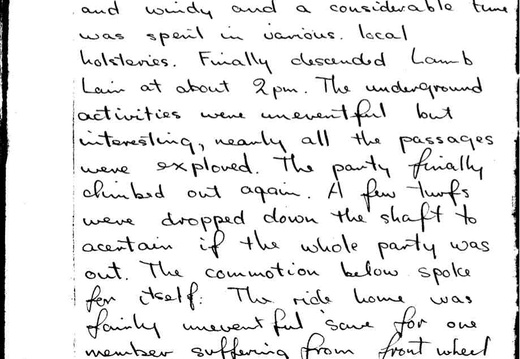 and windy and a considerable time
was spent in various local
holsteries. Finally descended Lamb
Lair at about 2pm. The underground
activities were uneventful but
interesting, nearly all the passages
were explored. The party finally
climbed out again. A few turfs
were dropped down the shaft to
acertain if the whole party was
out. The commotion below spoke
for itself. The ride home was
fairly uneventful save for one
member suffering from front wheel